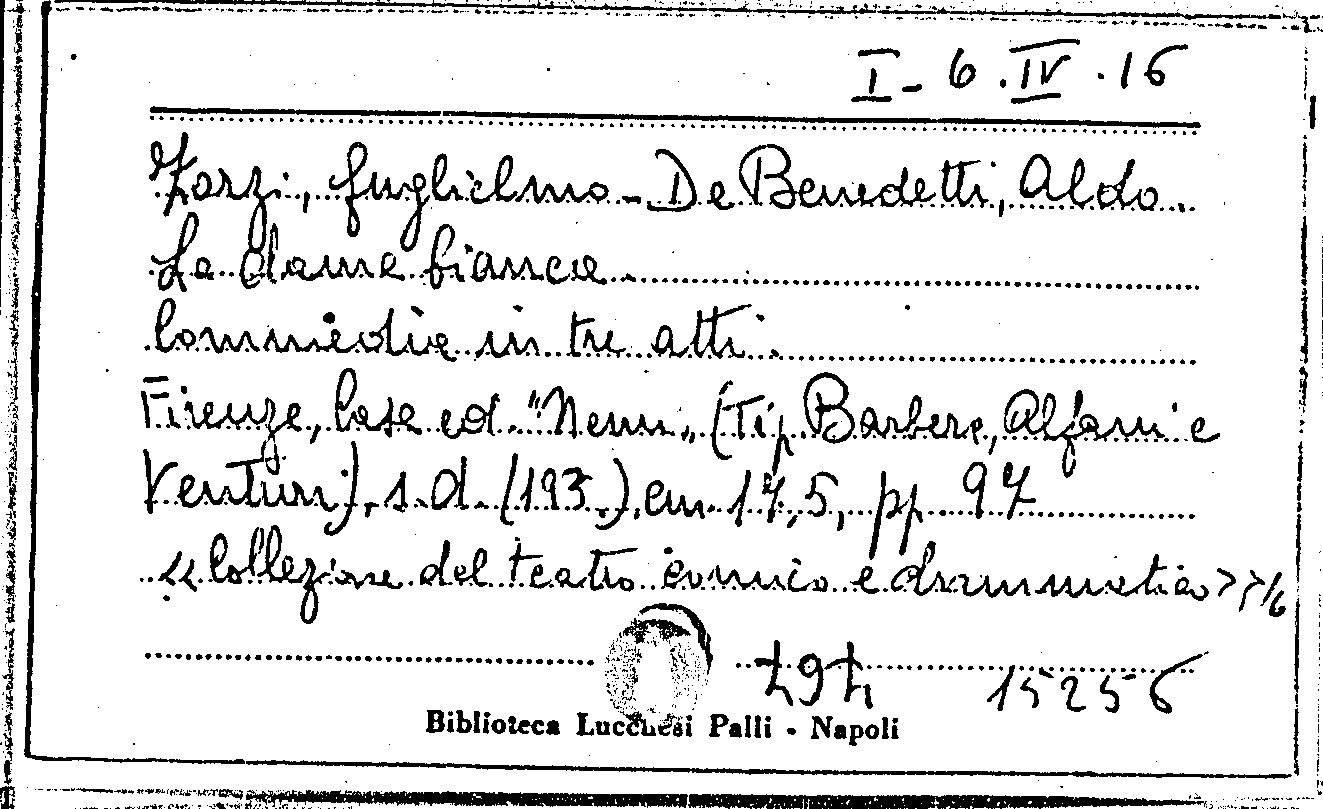 I - 6. IV. 16
Zorzi, Guglielmo - De Benedetti, Aldo.
La dama bianca.
Commedia in tre atti.
Firenze, Casa ed. "Nemi" (Tip. Barbera, Alfani e
Venturi), s.d. (193.), cm. 17,5, pp. 97
<< Collezione del teatro comico e drammatico >> /6
797 15256
Biblioteca Lucchesi Palli - Napoli